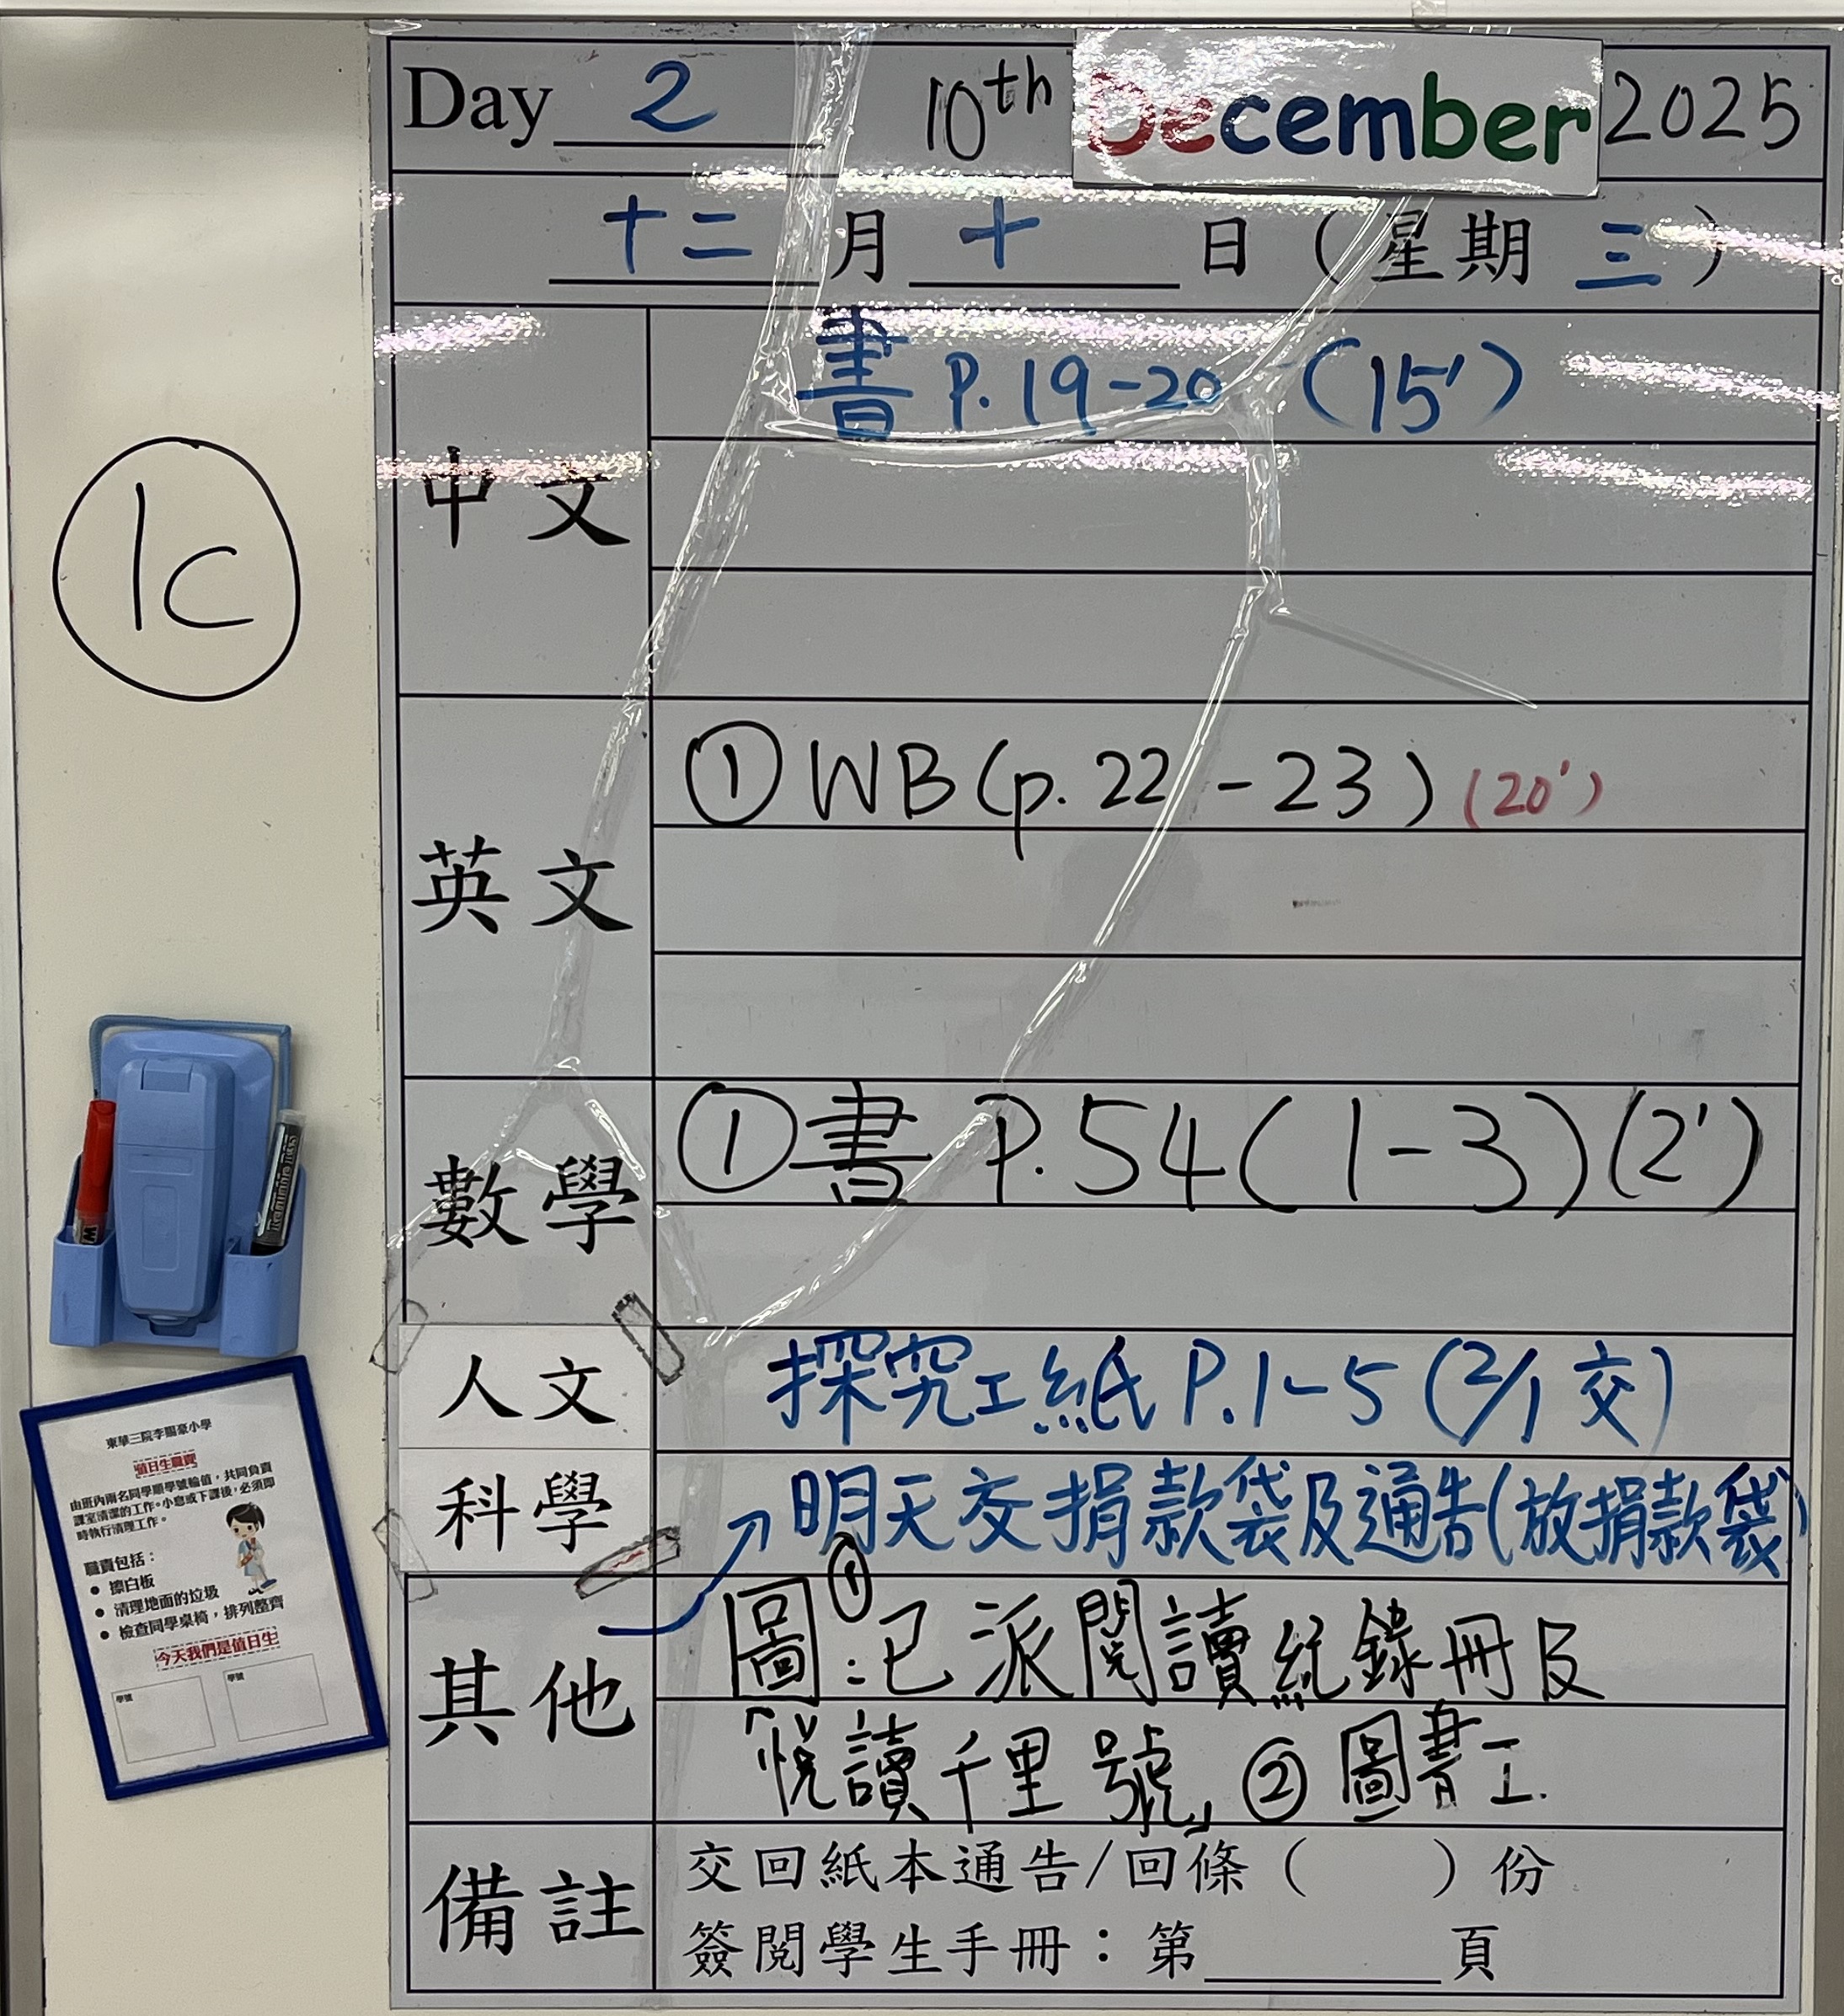 Day 2 10th December 2025
十二月十日（星期三）
中文
書 P.19-20 (15')
1C
英文
① WB (p. 22 - 23) (20')
數學
① 書 P.54 (1-3) (2')
人文
探究工紙 P.1-5 (2/1 交)
科學
明天交捐款袋及通告(放捐款袋)
其他
圖:①已派閱讀紀錄冊及
「悅讀千里號」② 圖書工.
備註
交回紙本通告/回條（ ）份
簽閱學生手冊：第 頁
Reliable 1055
東華三院李賜豪小學
值日生職責
由班內兩名同學順學號輪值，共同負責
課室清潔的工作。小息或下課後，必須即
時執行清理工作。
職責包括：
● 擦白板
● 清理地面的垃圾
● 檢查同學桌椅，排列整齊
今天我們是值日生
學號 學號